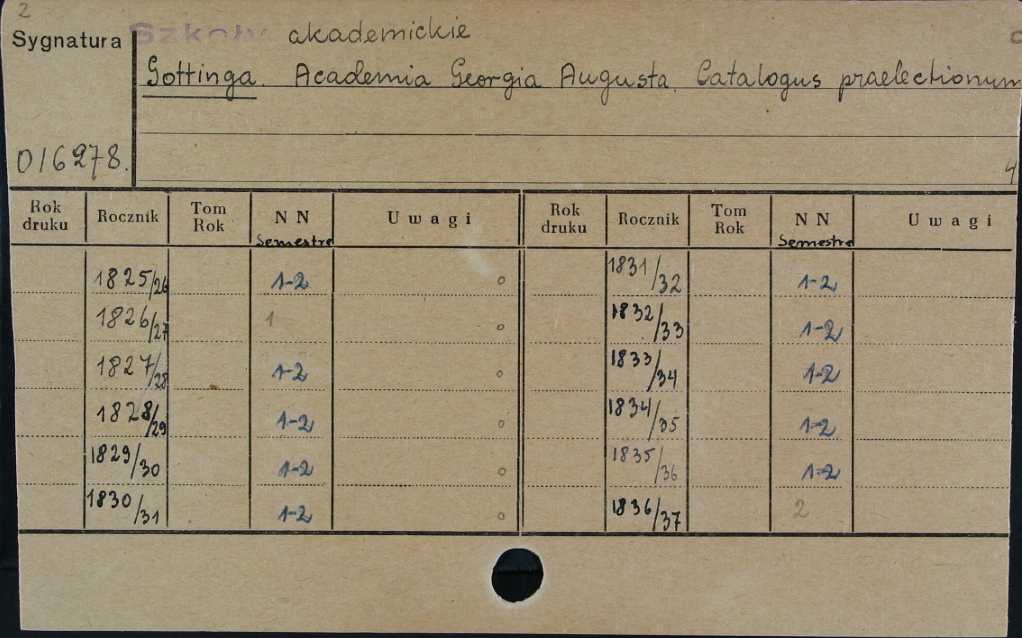 2
Sygnatura
Szkoły akademickie
Gottinga. Academia Georgia Augusta. Catalogus praelectionum
016278.
4
Rok druku Rocznik Tom Rok NN Semestre Uwagi Rok druku Rocznik Tom Rok NN Semestre Uwagi
1825/26 1-2 o 1831/32 1-2
1826/27 1 o 1832/33 1-2
1827/28 1-2 o 1833/34 1-2
1828/29 1-2 o 1834/35 1-2
1829/30 1-2 o 1835/36 1-2
1830/31 1-2 o 1836/37 2